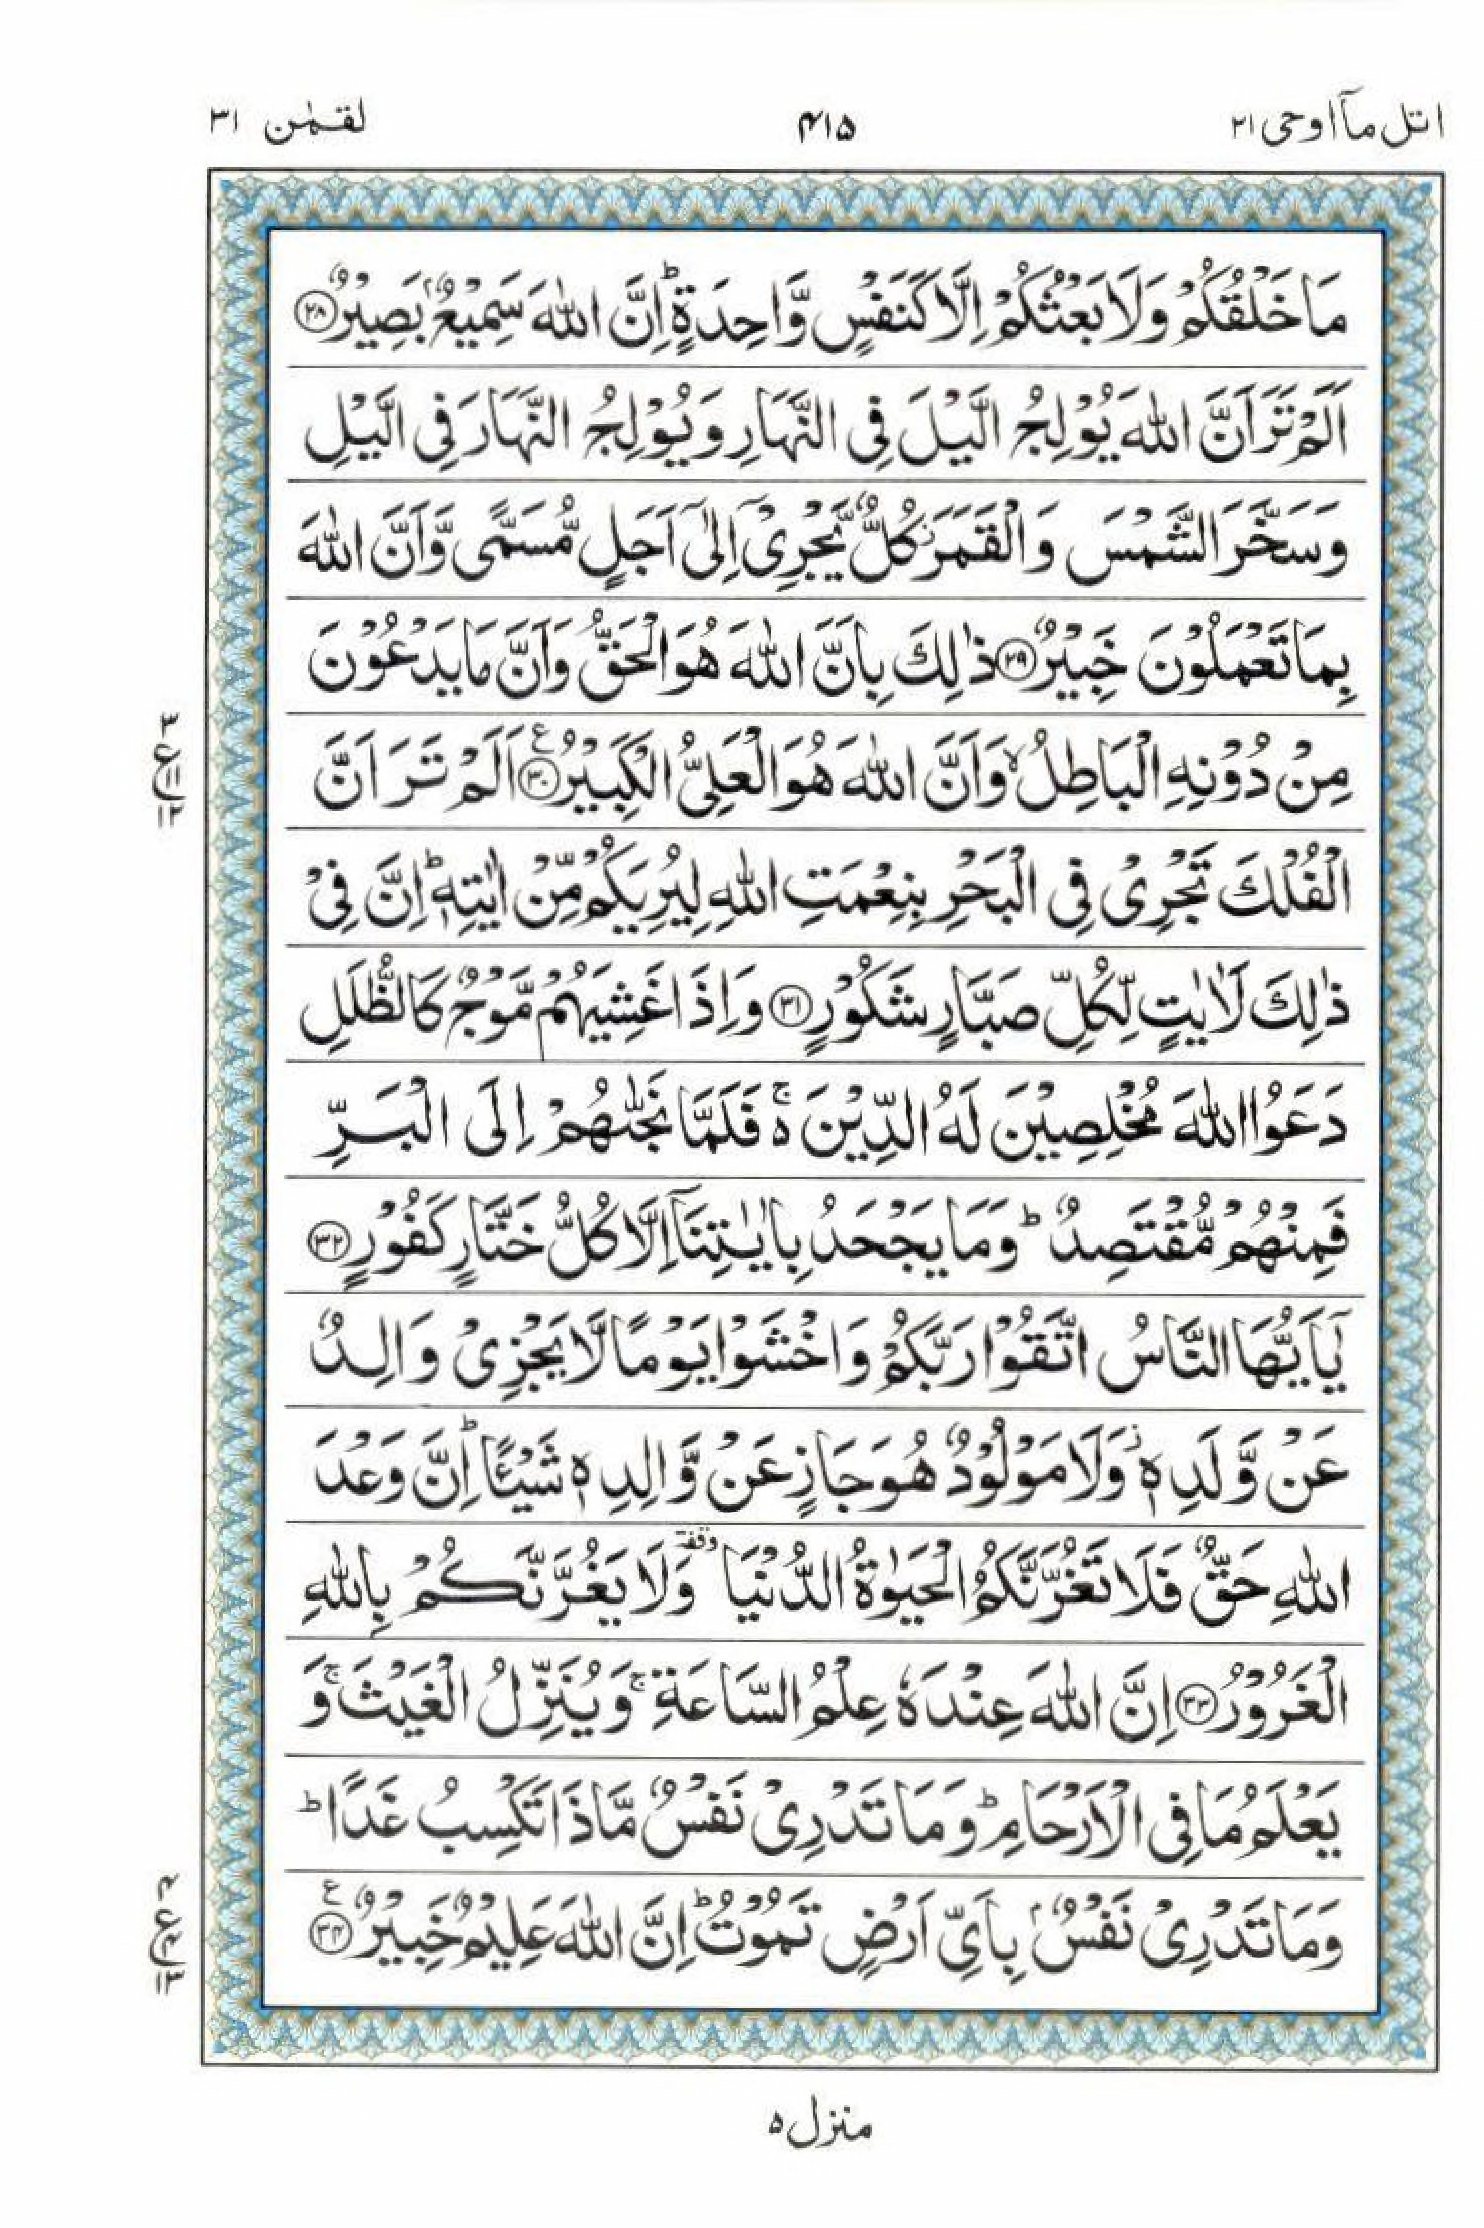 اتل مآ اوحی ٢١
٤١٥
لقمٰن ٣١
مَا خَلْقُكُمْ وَلَا بَعْثُكُمْ اِلَّا كَنَفْسٍ وَّاحِدَةٍ ؕ اِنَّ اللّٰهَ سَمِیْعٌۢ بَصِیْرٌ ۝٢٨
اَلَمْ تَرَ اَنَّ اللّٰهَ یُوْلِجُ الَّیْلَ فِی النَّهَارِ وَیُوْلِجُ النَّهَارَ فِی الَّیْلِ
وَسَخَّرَ الشَّمْسَ وَالْقَمَرَ ؗ كُلٌّ یَّجْرِیْۤ اِلٰۤی اَجَلٍ مُّسَمًّی وَّاَنَّ اللّٰهَ
بِمَا تَعْمَلُوْنَ خَبِیْرٌ ۝٢٩ ذٰلِكَ بِاَنَّ اللّٰهَ هُوَ الْحَقُّ وَاَنَّ مَا یَدْعُوْنَ
مِنْ دُوْنِهِ الْبَاطِلُ ۙ وَاَنَّ اللّٰهَ هُوَ الْعَلِیُّ الْكَبِیْرُ ۝٣٠ ع اَلَمْ تَرَ اَنَّ
٣
ع
١١
١٢
الْفُلْكَ تَجْرِیْ فِی الْبَحْرِ بِنِعْمَتِ اللّٰهِ لِیُرِیَكُمْ مِّنْ اٰیٰتِهٖ ؕ اِنَّ فِیْ
ذٰلِكَ لَاٰیٰتٍ لِّكُلِّ صَبَّارٍ شَكُوْرٍ ۝٣١ وَاِذَا غَشِیَهُمْ مَّوْجٌ كَالظُّلَلِ
دَعَوُا اللّٰهَ مُخْلِصِیْنَ لَهُ الدِّیْنَ ۚ۬ فَلَمَّا نَجّٰىهُمْ اِلَی الْبَرِّ
فَمِنْهُمْ مُّقْتَصِدٌ ؕ وَمَا یَجْحَدُ بِاٰیٰتِنَاۤ اِلَّا كُلُّ خَتَّارٍ كَفُوْرٍ ۝٣٢
یٰۤاَیُّهَا النَّاسُ اتَّقُوْا رَبَّكُمْ وَاخْشَوْا یَوْمًا لَّا یَجْزِیْ وَالِدٌ
عَنْ وَّلَدِهٖ ؗ وَلَا مَوْلُوْدٌ هُوَ جَازٍ عَنْ وَّالِدِهٖ شَیْـًٔا ؕ اِنَّ وَعْدَ
اللّٰهِ حَقٌّ فَلَا تَغُرَّنَّكُمُ الْحَیٰوةُ الدُّنْیَا وقفة وَلَا یَغُرَّنَّكُمْ بِاللّٰهِ
الْغَرُوْرُ ۝٣٣ اِنَّ اللّٰهَ عِنْدَهٗ عِلْمُ السَّاعَةِ ۚ وَیُنَزِّلُ الْغَیْثَ ۚ وَ
یَعْلَمُ مَا فِی الْاَرْحَامِ ؕ وَمَا تَدْرِیْ نَفْسٌ مَّاذَا تَكْسِبُ غَدًا ؕ
وَمَا تَدْرِیْ نَفْسٌۢ بِاَیِّ اَرْضٍ تَمُوْتُ ؕ اِنَّ اللّٰهَ عَلِیْمٌ خَبِیْرٌ ۝٣٤ ع
ع
١٣
منزل ٥